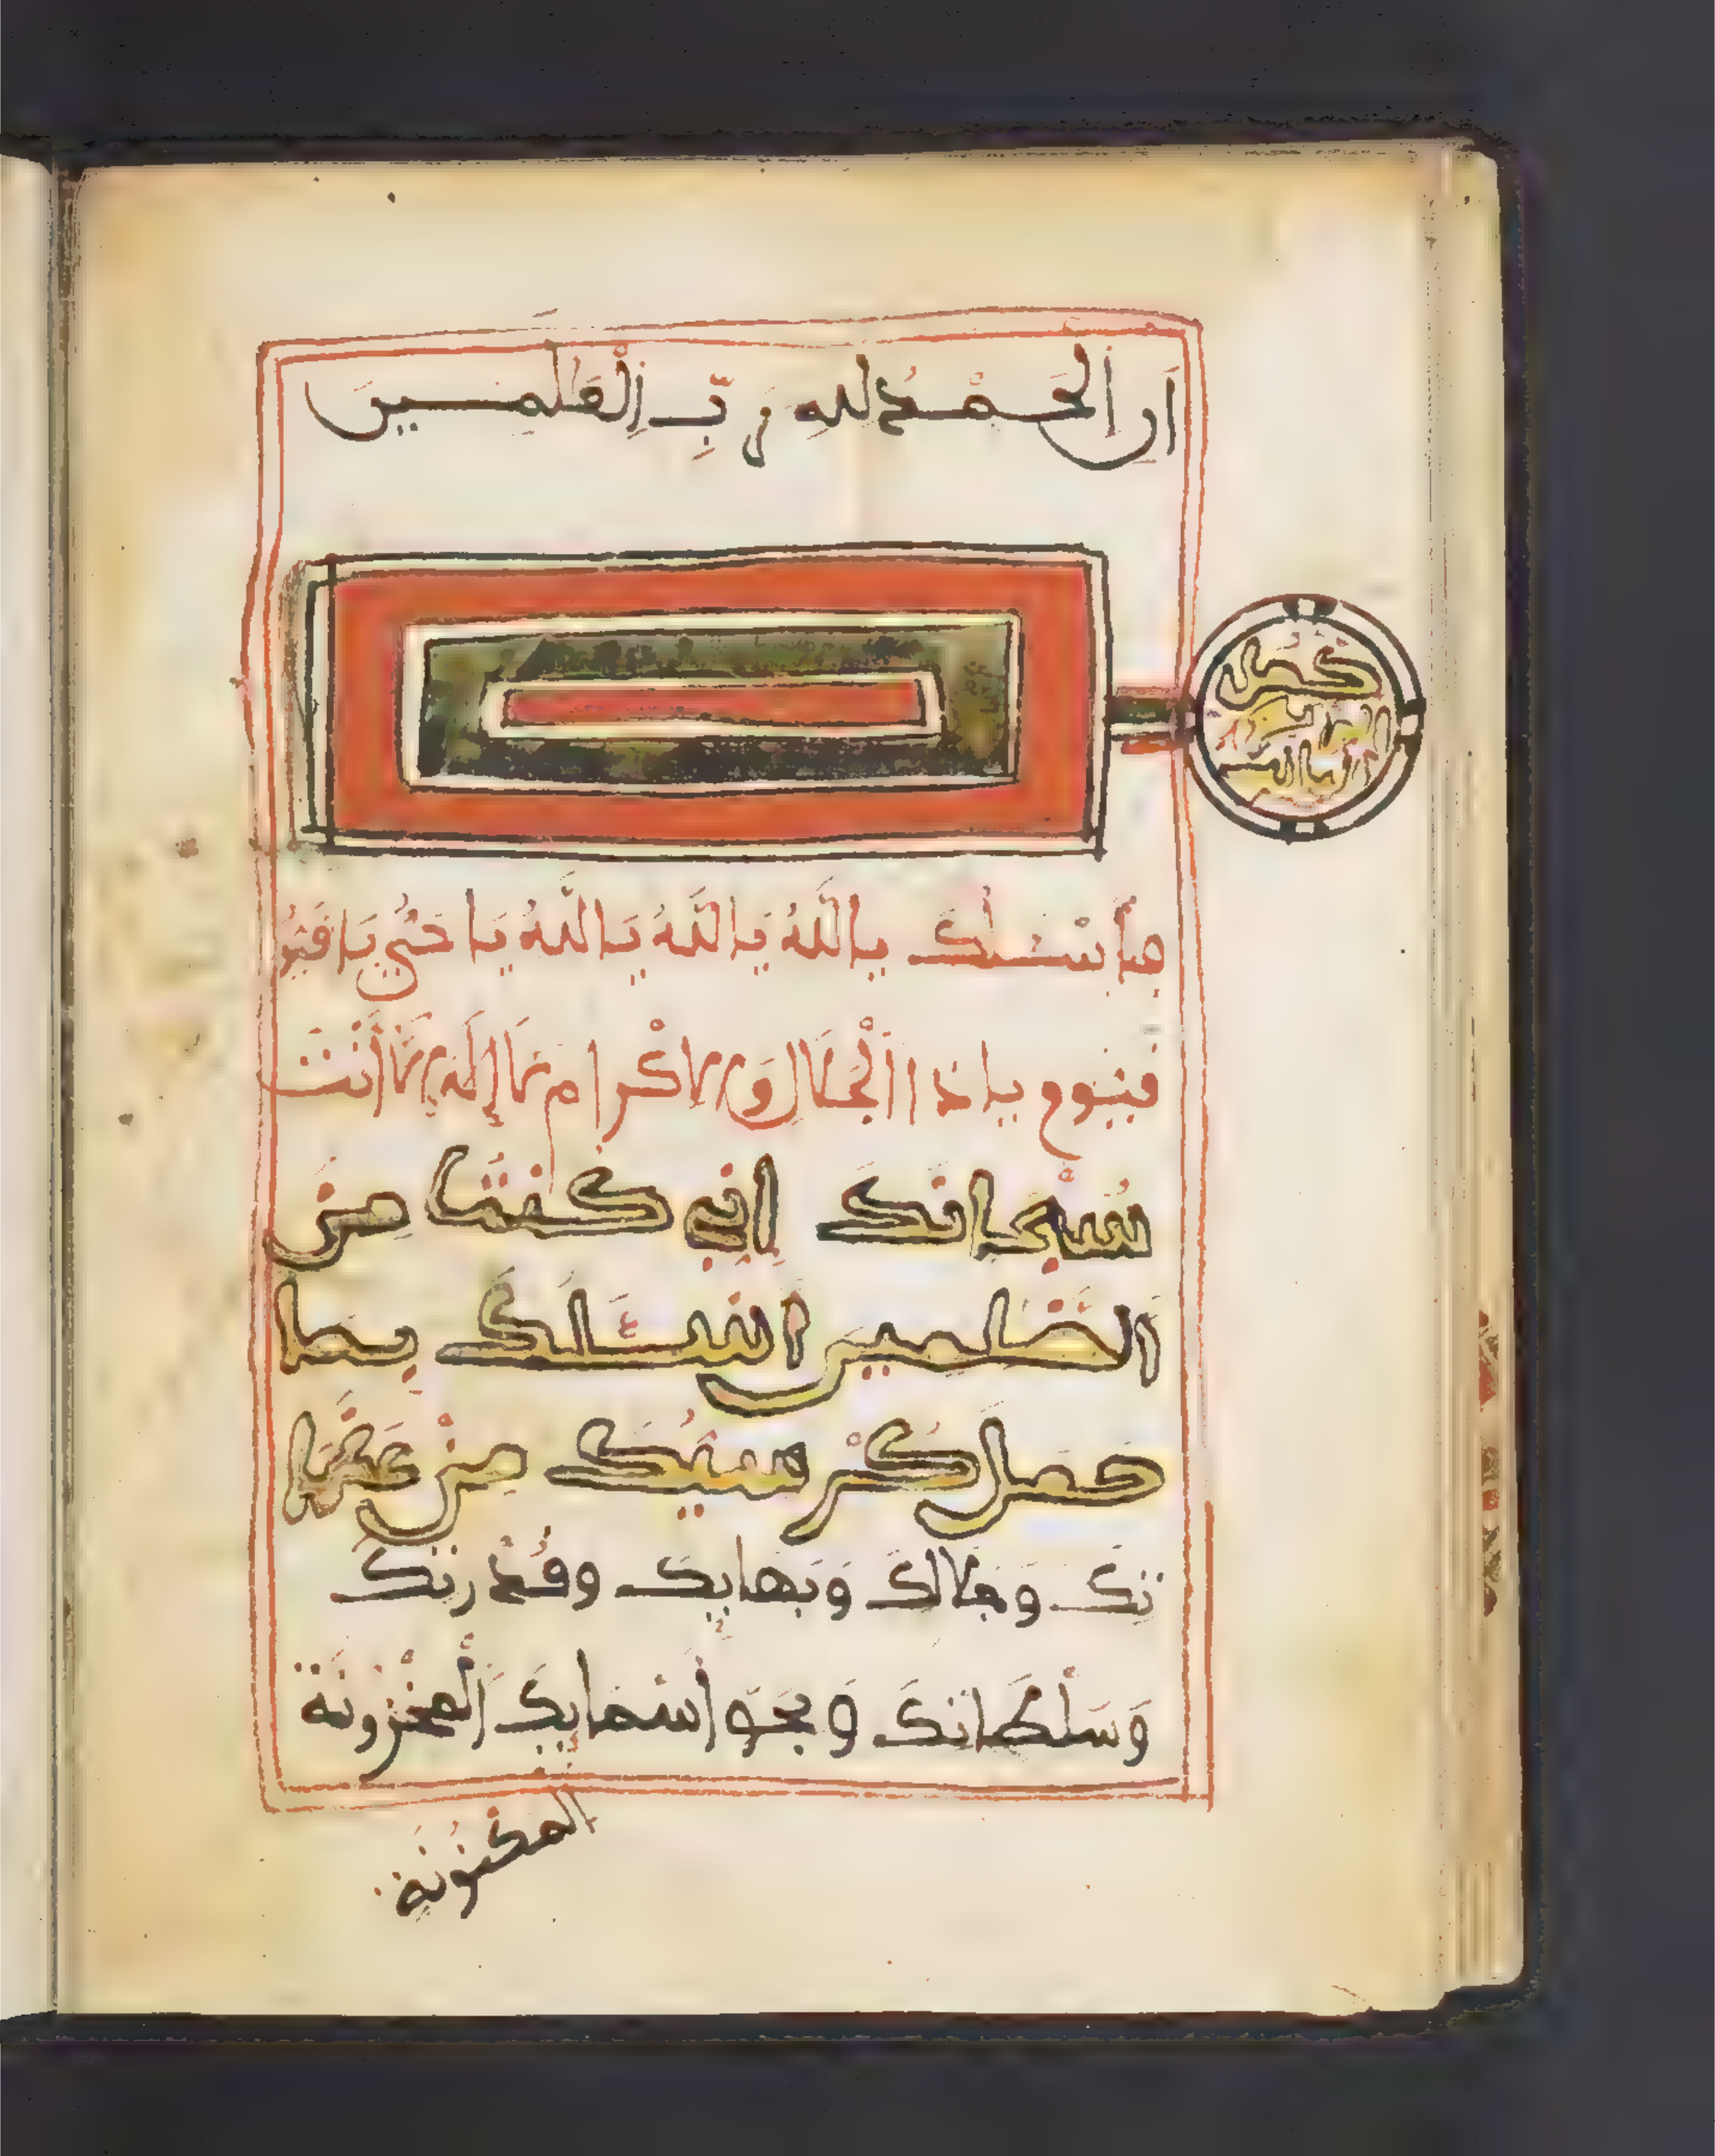 اَنِ اِلْحَمْدُ لِلهِ رَبِّ اِلْعَٰلَمِينَ
أسْئَلُكَ يَااَللَّهُ يَااَللَّهُ يَااَللَّهُ يَا حَيُّ يَا قَيُّو
قيوم ياذا اَلْجَلَالِ وَالاكْرام لَا إِلَهَ إِلَّا أَنْتَ
سُبْحانكَ إني كنتُ مِنَ
الظَّلِمِينَ أسْئَلُكَ بِمَا
حَمَلَ كُرْسِيُّكَ مِنْ عَظَمَا
تِكَ وَجَلَالِكَ وَبَهَايِكَ وقُدْرتِكَ
وَسَلْطَانِكَ وَبحَقِّ أَسْمَايِكَ اَلْمَخْزُونَة
المكْنُونَة